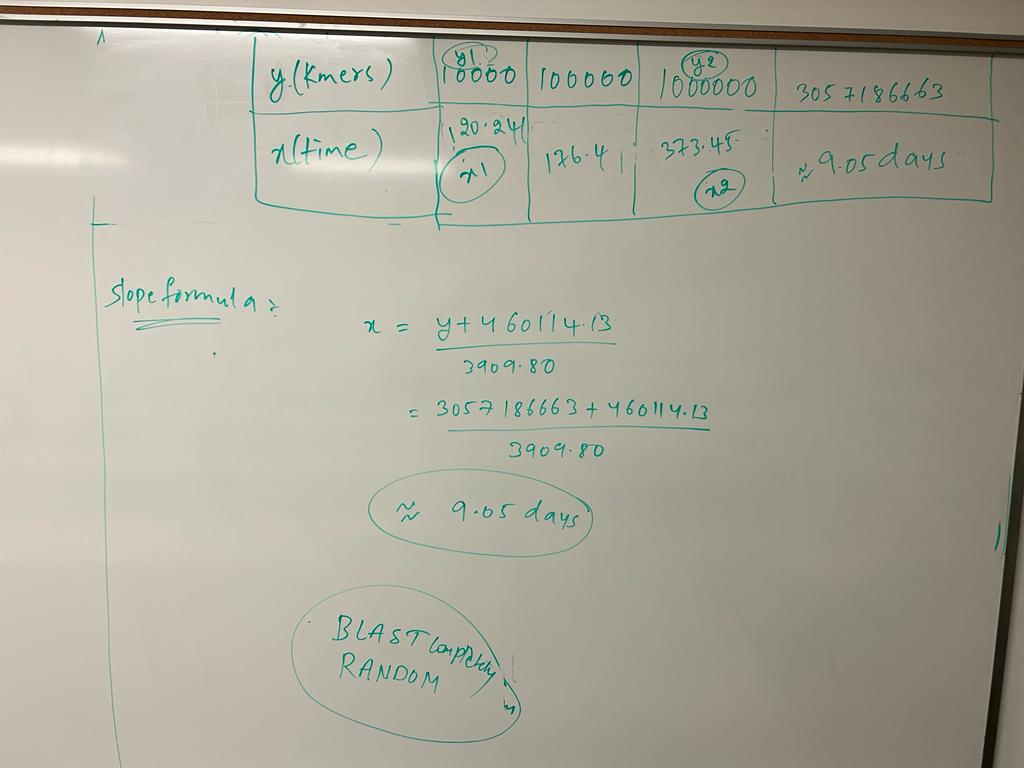 y.(Kmers) 10000 100000 1000000 3057186663
y1 y2
x(time) 120.241 176.41 373.45 ≈ 9.05 days
x1 x2
Slope formula :
x = y + 460114.13
3909.80
= 3057186663 + 460114.13
3909.80
≈ 9.05 days
BLAST completely
RANDOM